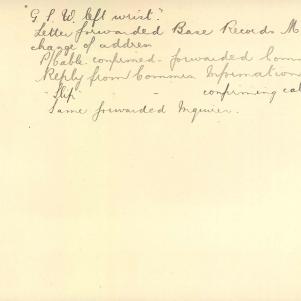 "G. S. W. left wrist."
Letter forwarded Base Records M
change of address
P/Cable confirmed - forwarded Com
Reply from Commrx Information
"Slip" - confirming cab
Same forwarded Inquirer.